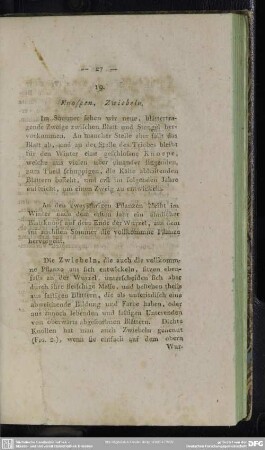 — 27 —
19.
Knospen, Zwiebeln.
Im Sommer sehen wir neue, blättertra-
gende Zweige zwischen Blatt und Stengel her-
vorkommen. An mancher Stelle aber fällt das
Blatt ab, und an der Stelle des Triebes bleibt
für den Winter eine geschlossne Knospe,
welche mit vielen oder
zum Theil schuppigen, die Kälte abhaltenden
Blättern besteht, und erst im folgenden Jahre
aufbricht, um einen Zweig zu entwickeln.
An den zweyjährigen Pflanzen bleibt im
Winter auch schon
Blattknopf auf dem Ende der Wurzel, aus dem
im nächsten Sommer die vollkommne Pflanze
hervorgeht.
Die Zwiebeln, die auch die vollkomm-
ne Pflanze aus sich entwickeln, sitzen eben-
falls an der Wurzel, unterscheiden sich aber
durch ihre fleischige Masse, und bestehen theils
aus saftigen Blättern, die als unterirdisch eine
abweichende Bildung und Farbe haben, oder
aus ebenso lebenden und saftigen Unterenden
von oberwärts abgestorbnen Blättern. Dichte
Knollen hat man auch Zwiebeln genennt
(Fat. 2.), wenn sie einfach auf dem obern
Wur-